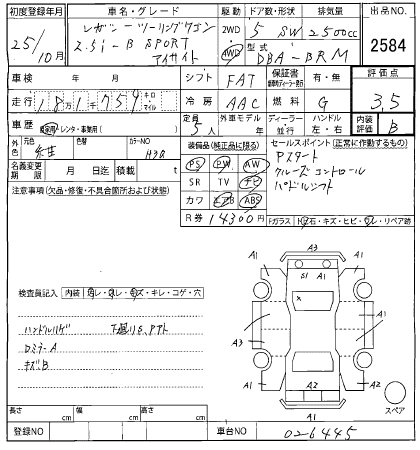 初度登録年月
25/10月
車名・グレード
レガシーツーリングワゴン
2.5i-B SPORT
アイサイト
駆動
2WD
4WD
ドア数・形状
5 SW
排気量
2500cc
型式
DBA-BRM
出品NO.
2584
車検 年 月
シフト FAT
保証書 有・無
評価点
3.5
走行 18万1千759 キロ マイル
冷房 AAC
燃料 G
車歴 自家用・レンタ・事業用( )
定員 5人
外車モデル 年
ディーラー 並行
ハンドル 左・右
内装評価 B
外色 元色 紺 色替 カラーNO H3Q
名義変更期限 月 日迄
積載 t
装備品(純正品に限る)
PS PW AW
SR TV ナビ
カワ エアB ABS
R券 14300円
セールスポイント(正常に作動するもの)
Pスタート
クルーズコントロール
パドルシフト
注意事項(欠品・修復・不具合箇所および状態)
Fガラス 飛石・キズ・ヒビ・ワレ・リペア跡
検査員記入 内装 汚レ・スレ・キズ・キレ・コゲ・穴
ハンドルハゲ
下廻りS,Pアト
ロミラーA
キズB
A3
A1
S1 A1
A1
X
A3
A1
A1
A2
A2
A1
スペア
長さ cm
幅 cm
高さ cm
登録NO
車台NO
02-6445